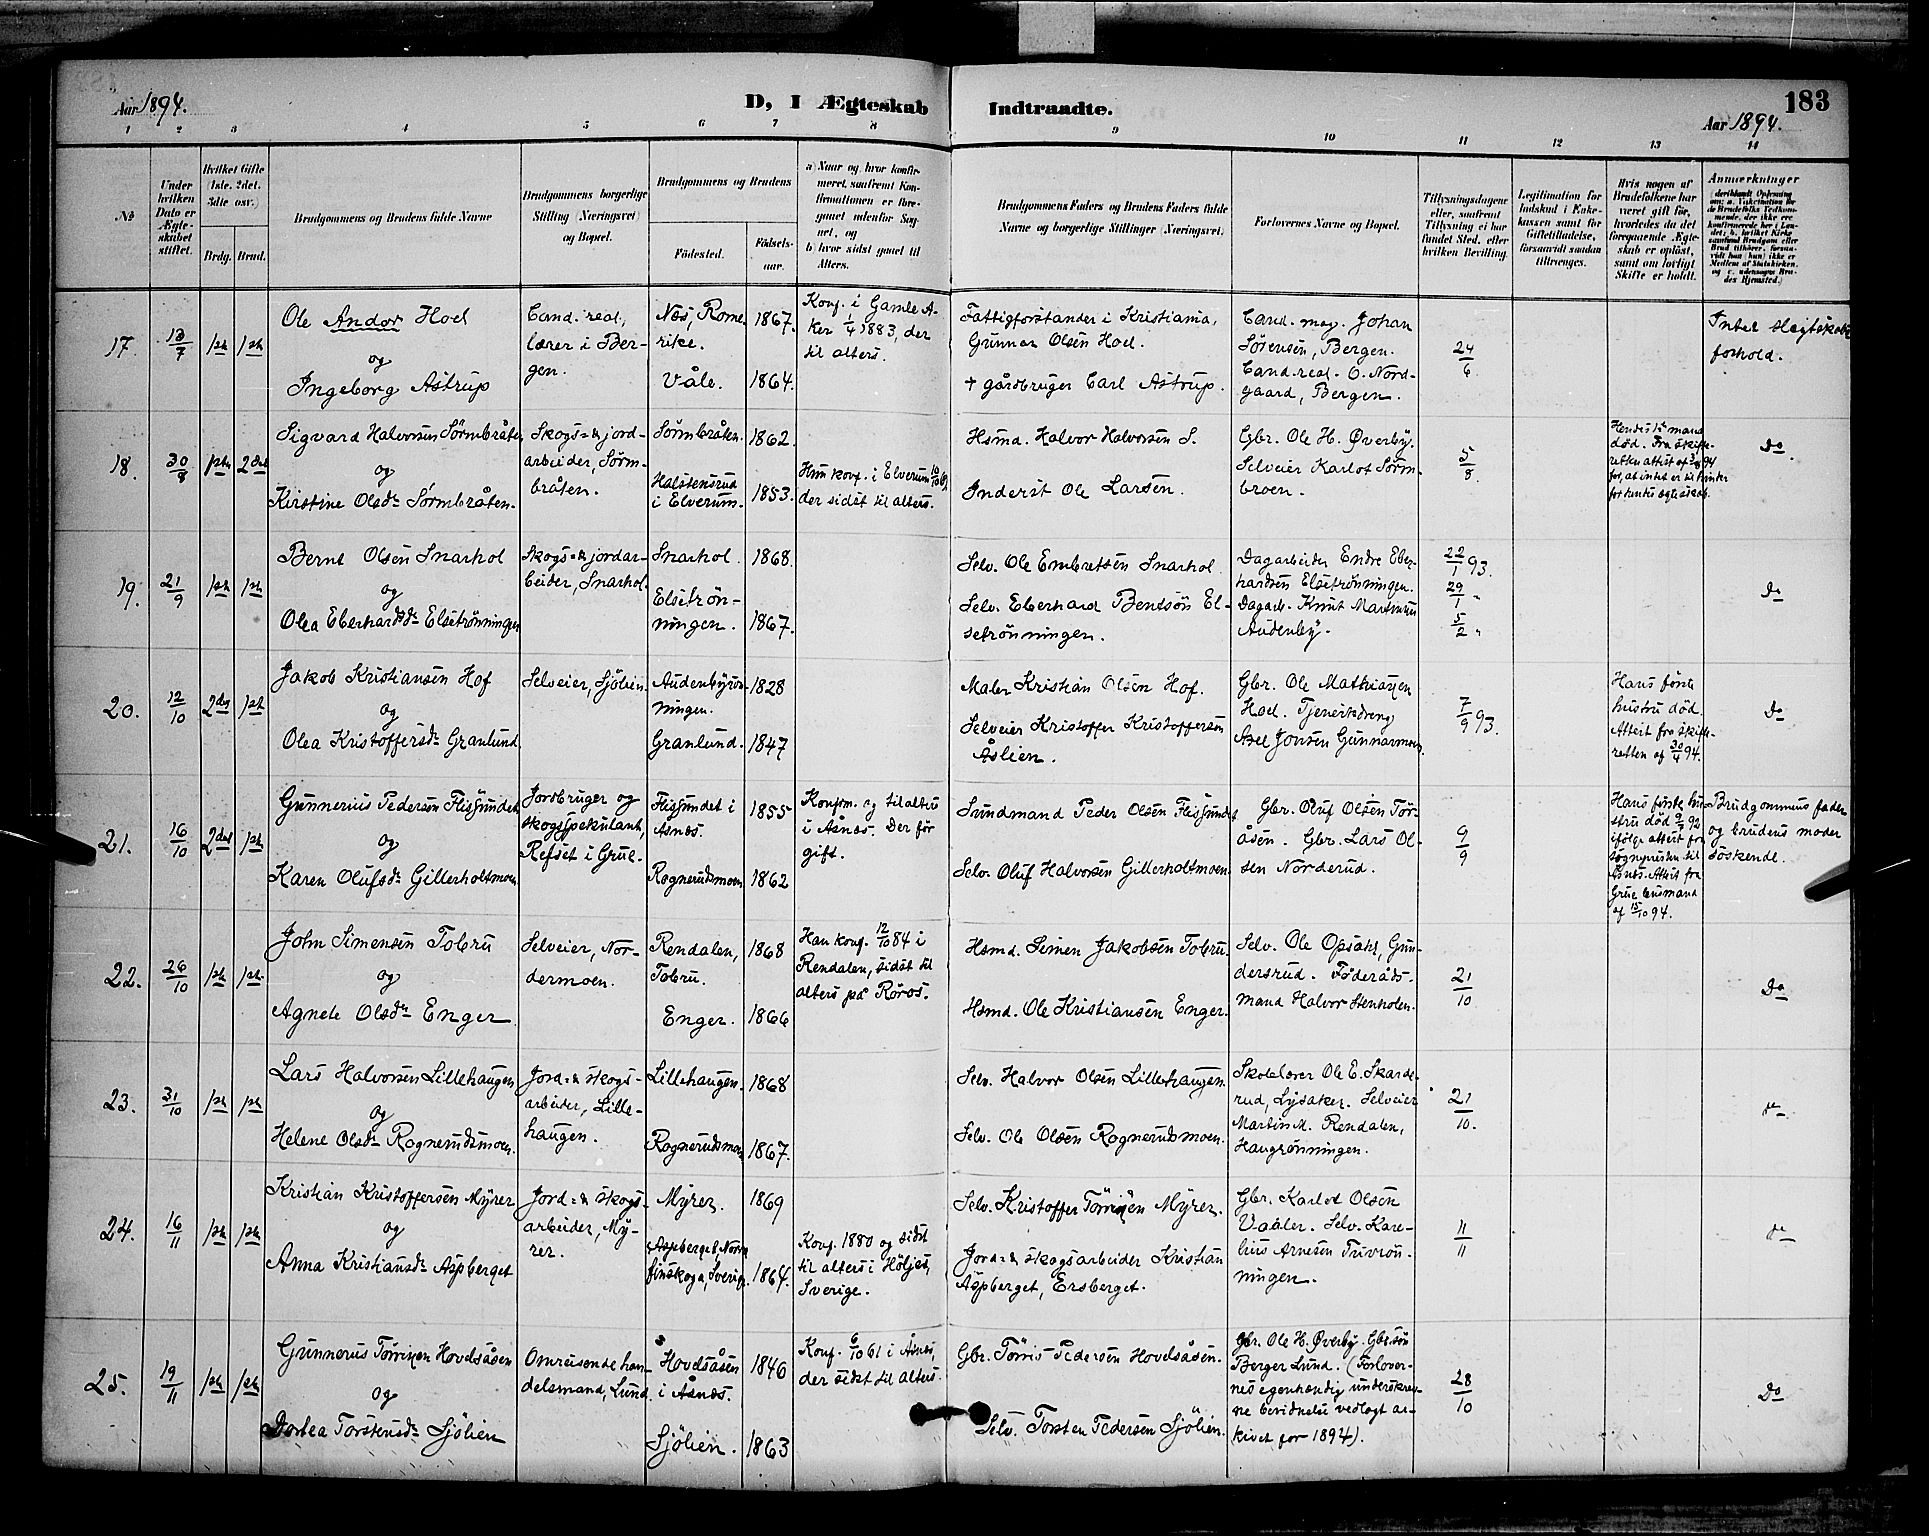 183
Aar 1894.
D, I Ægteskab Indtraadte.
Aar 1894.
1 2 3 4 5 6 7 8 9 10 11 12 13 14
№
Under hvilken Dato er Ægteskabet stiftet.
Hvilket Gifte (1ste. 2det. 3die osv.)
Brdg. Brud.
Brudgommens og Brudens fulde Navne
Brudgommens borgerlige Stilling (Næringsvei) og Bopæl.
Brudgommens og Brudens
Fødested.
Fødselsaar.
a) Naar og hvor konfirmeret, saafremt Konfirmationen er foregaaet udenfor Sognet, og
b) hvor sidst gaaet til Alters.
Brudgommens Faders og Brudens Faders fulde Navne og borgerlige Stillinger (Næringsvei).
Forlovernes Navne og Bopæl.
Tillysningsdagene eller, saafremt Tillysning ei har fundet Sted, efter hvilken Bevilling.
Legitimation for Indskud i Enkekassen samt for Giftetilladelse, forsaavidt saadan tiltrænges.
Hvis nogen af Brudefolkene har været gift før, hvorledes da det foregaaende Ægteskab er opløst, samt om lovligt Skifte er holdt.
Anmærkninger
17. 13/7 1ste 1ste
Ole Andor Hoel
og
Ingeborg Astrup
Cand. real,
lærer i Bergen.
Næs, Romerike. 1867.
Våle. 1864.
Konf. i Gamle Aker 1/4 1883, der
til alters.
Fattigforstander i Kristiania,
Gunnar Olsen Hoel.
† gårdbruger Carl Astrup.
Cand. mag. Johan
Sørensen, Bergen.
Cand. real. O. Nordgaard, Bergen.
24/6
Intet slegtskabsforhold.
18. 30/8 1ste 2det
Sigvard Halvorsen Sörmbråten
og
Kirstine Olsdr Sörmbråten.
Skogs- & jordarbeider, Sörmbråten.
Sörmbråten. 1862.
Halstensrud
i Elverum. 1853.
Hun konf. i Elverum
der sidst til alters.
Hsmd. Halvor Halvorsen S.
Inderst Ole Larsen.
Gbr. Ole H. Øverby.
Selveier Karlot Sörmbroen.
5/8
Hendes 1ste mand
død. Fra skifteretten attest af
for, at intet er til hinder
for hendes ægteskab.
Do.
19. 21/9 1ste 1ste
Bernt Olsen Snarhol
og
Olea Eberhardsdr Elsetrönningen
Skogs- & jordarbeider, Snarhol.
Snarhol. 1868.
Elsetrönningen. 1867.
Selv. Ole Embretsen Snarhol.
Selv. Eberhard Bentsön Elsetrönningen.
Dagarbeider Endre Eberhardsen Elsetrönningen.
Dagarb. Knut Martinsen
Audenby.
22/1 93.
29/1 "
5/2 "
Do
20. 12/10 2det 1ste
Jakob Kristiansen Hof
og
Olea Kristoffersdr Granlund.
Selveier, Sjölien.
Audenbyrönningen. 1828
Granlund. 1847
Maler Kristian Olsen Hof.
Selveier Kristoffer Kristoffersen
Åslien.
Gbr. Ole Mathiassen
Hoel. Tjenestedreng
Axel Jonsen Gunnarmoen.
7/9 93.
Hans første
hustru død.
Attest fra skifteretten af 30/4 94.
Do
21. 16/10 2det 1ste
Gunnerius Pedersen Flisundet
og
Karen Olufsdr Gillerholtmoen
Jordbruger og
skogsspekulant,
Refset i Grue.
Flisundet i
Åsnes. 1855
Rognerudsmoen 1862
Konfirm. og til alters
i Åsnes. Der før
gift.
Sundmand Peder Olsen Flisundet
Selv. Oluf Halvorsen Gillerholtmoen.
Gbr. Oluf Olsen Töråsen. Gbr. Lars Olsen Norderud.
9/9
Hans første hustru død 9/7 92
ifølge attest fra
sognepresten til
Åsnes. Attest fra
Grue lensmand
af 15/10 94.
Brudgommens fader
og brudens moder
söskende.
22. 26/10 1ste 1ste
John Simensen Tobru
og
Agnete Olsdr Enger
Selveier, Nordermoen.
Rendalen,
Tobru. 1868
Enger. 1866
Han konf. 12/10 84 i
Rendalen, sidst til
alters på Röros.
Hsmd. Simen Jakobsen Tobru.
Hsmd. Ole Kristiansen Enger.
Selv. Ole Opsahl, Gundersrud. Föderådsmand Halvor Stenholen.
21/10
Do
23. 31/10 1ste 1ste
Lars Halvorsen Lillehaugen
og
Helene Olsdr Rognerudsmoen.
Jord- & skogsarbeider, Lillehaugen.
Lillehaugen. 1868
Rognerudsmoen 1867.
Selv. Halvor Olsen Lillehaugen.
Selv. Ole Olsen Rognerudsmoen.
Skolelærer Ole E. Skarderud, Lysaker. Selveier
Martin M. Rendalen,
Haugrönningen.
21/10.
24. 16/11 1ste 1ste
Kristian Kristoffersen Myrer
og
Anna Kristiansdr Aspberget
Jord- & skogsarbeider, Myrer.
Myrer. 1869
Aspberget, Norra
finskoga, Sverig. 1864.
Konf. 1880 og sidst
til alters i Höljes,
Sverige.
Selv. Kristoffer Törrisen Myrer.
Jord- & skogsarbeider Kristian
Aspberget, Ersberget.
Gbr. Karlot Olsen
Vaaler. Selv. Karelius Arnesen Trivrönningen.
11/11
25. 19/11 1ste 1ste
Gunnerus Törrisen Hovelsåsen
og
Dortea Torstensdr Sjölien
Omreisende handelsmand, Lund
Hovelsåsen
i Åsnes. 1846
Sjölien. 1863
Konf. 6/10 61 i Åsnes,
der sidst til alters.
Gbr. Törris Pedersen Hovelsåsen.
Selv. Torsten Pedersen Sjölien.
Gbr. Ole H. Øverby. Gbr.sön
Berger Lund. (Forlovernes egenhændig underskrevne bevidnelse vedlagt arkivet for 1894).
28/10
Do